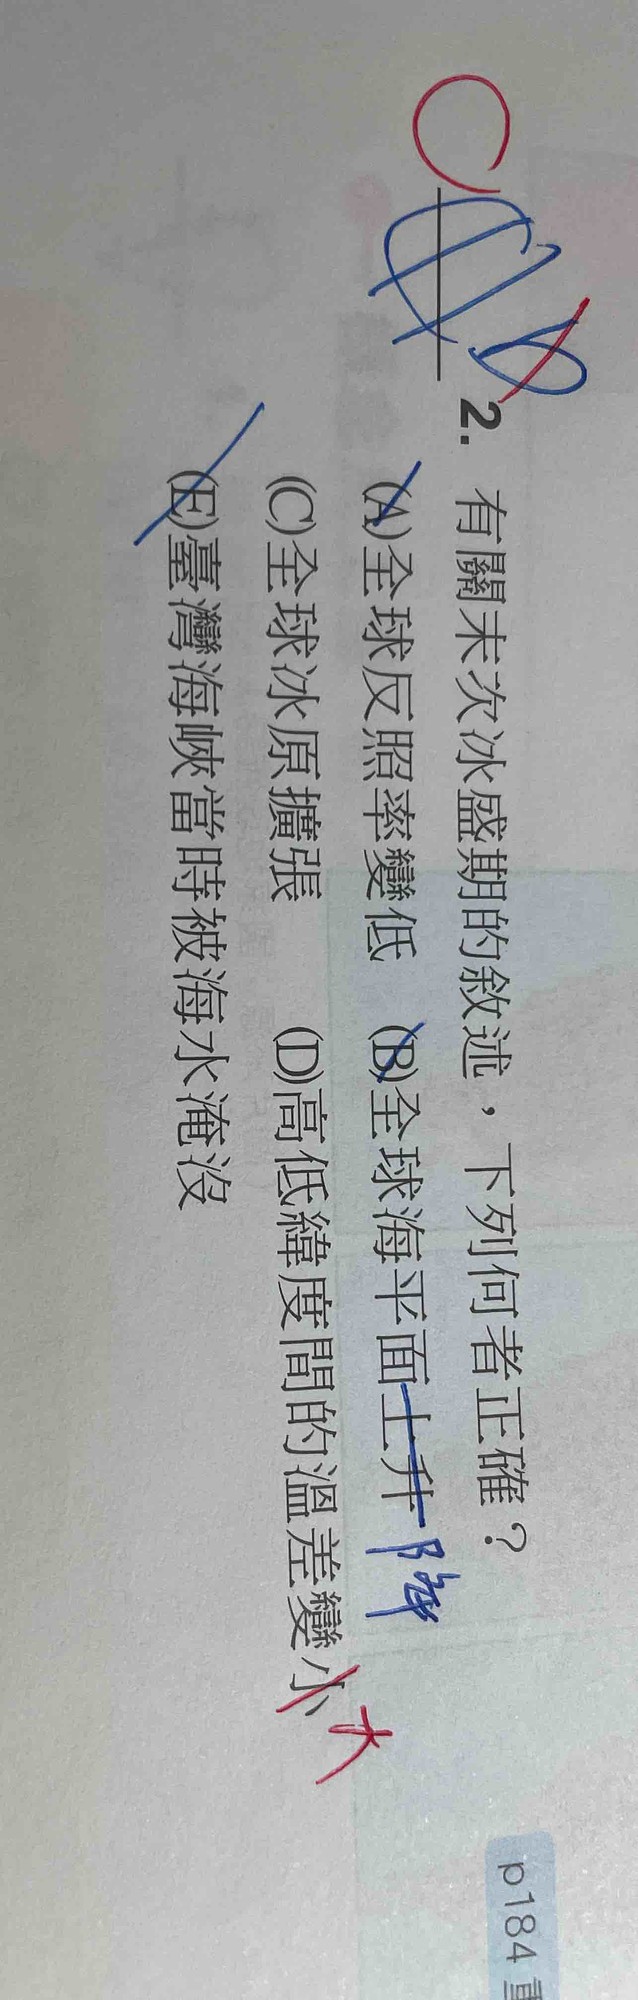 C D
2. 有關末次冰盛期的敘述，下列何者正確？
(A)全球反照率變低 (B)全球海平面上升 降
(C)全球冰原擴張 (D)高低緯度間的溫差變小 大
(E)臺灣海峽當時被海水淹沒
p184